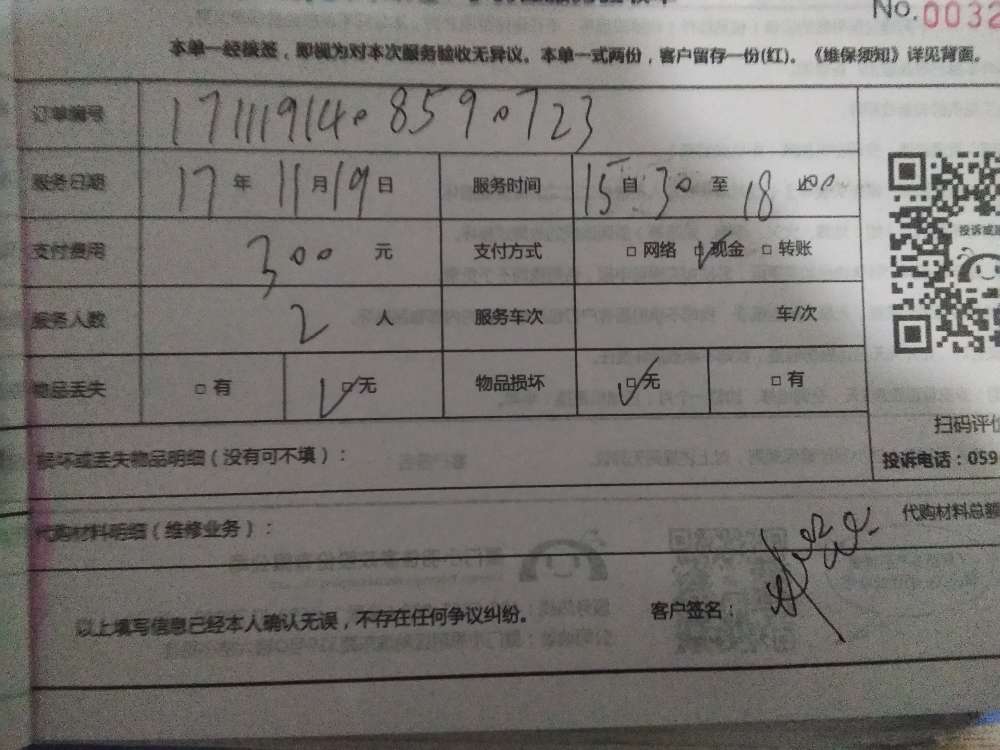 No. 0032
本单一经核签，即视为对本次服务验收无异议。本单一式两份，客户留存一份(红)。《维保须知》详见背面。
订单编号 17111914.859.723
服务日期 17 年 11 月 19 日 服务时间 15:30 自 至 18:00
支付费用 300 元 支付方式 □ 网络 □ 现金 □ 转账
投诉或
服务人数 2 人 服务车次 车/次
物品丢失 □ 有 □ 无 物品损坏 □ 无 □ 有
扫码评价
损坏或丢失物品明细（没有可不填）：
投诉电话：059
代购材料明细（维修业务）：
代购材料总额
以上填写信息已经本人确认无误，不存在任何争议纠纷。 客户签名：